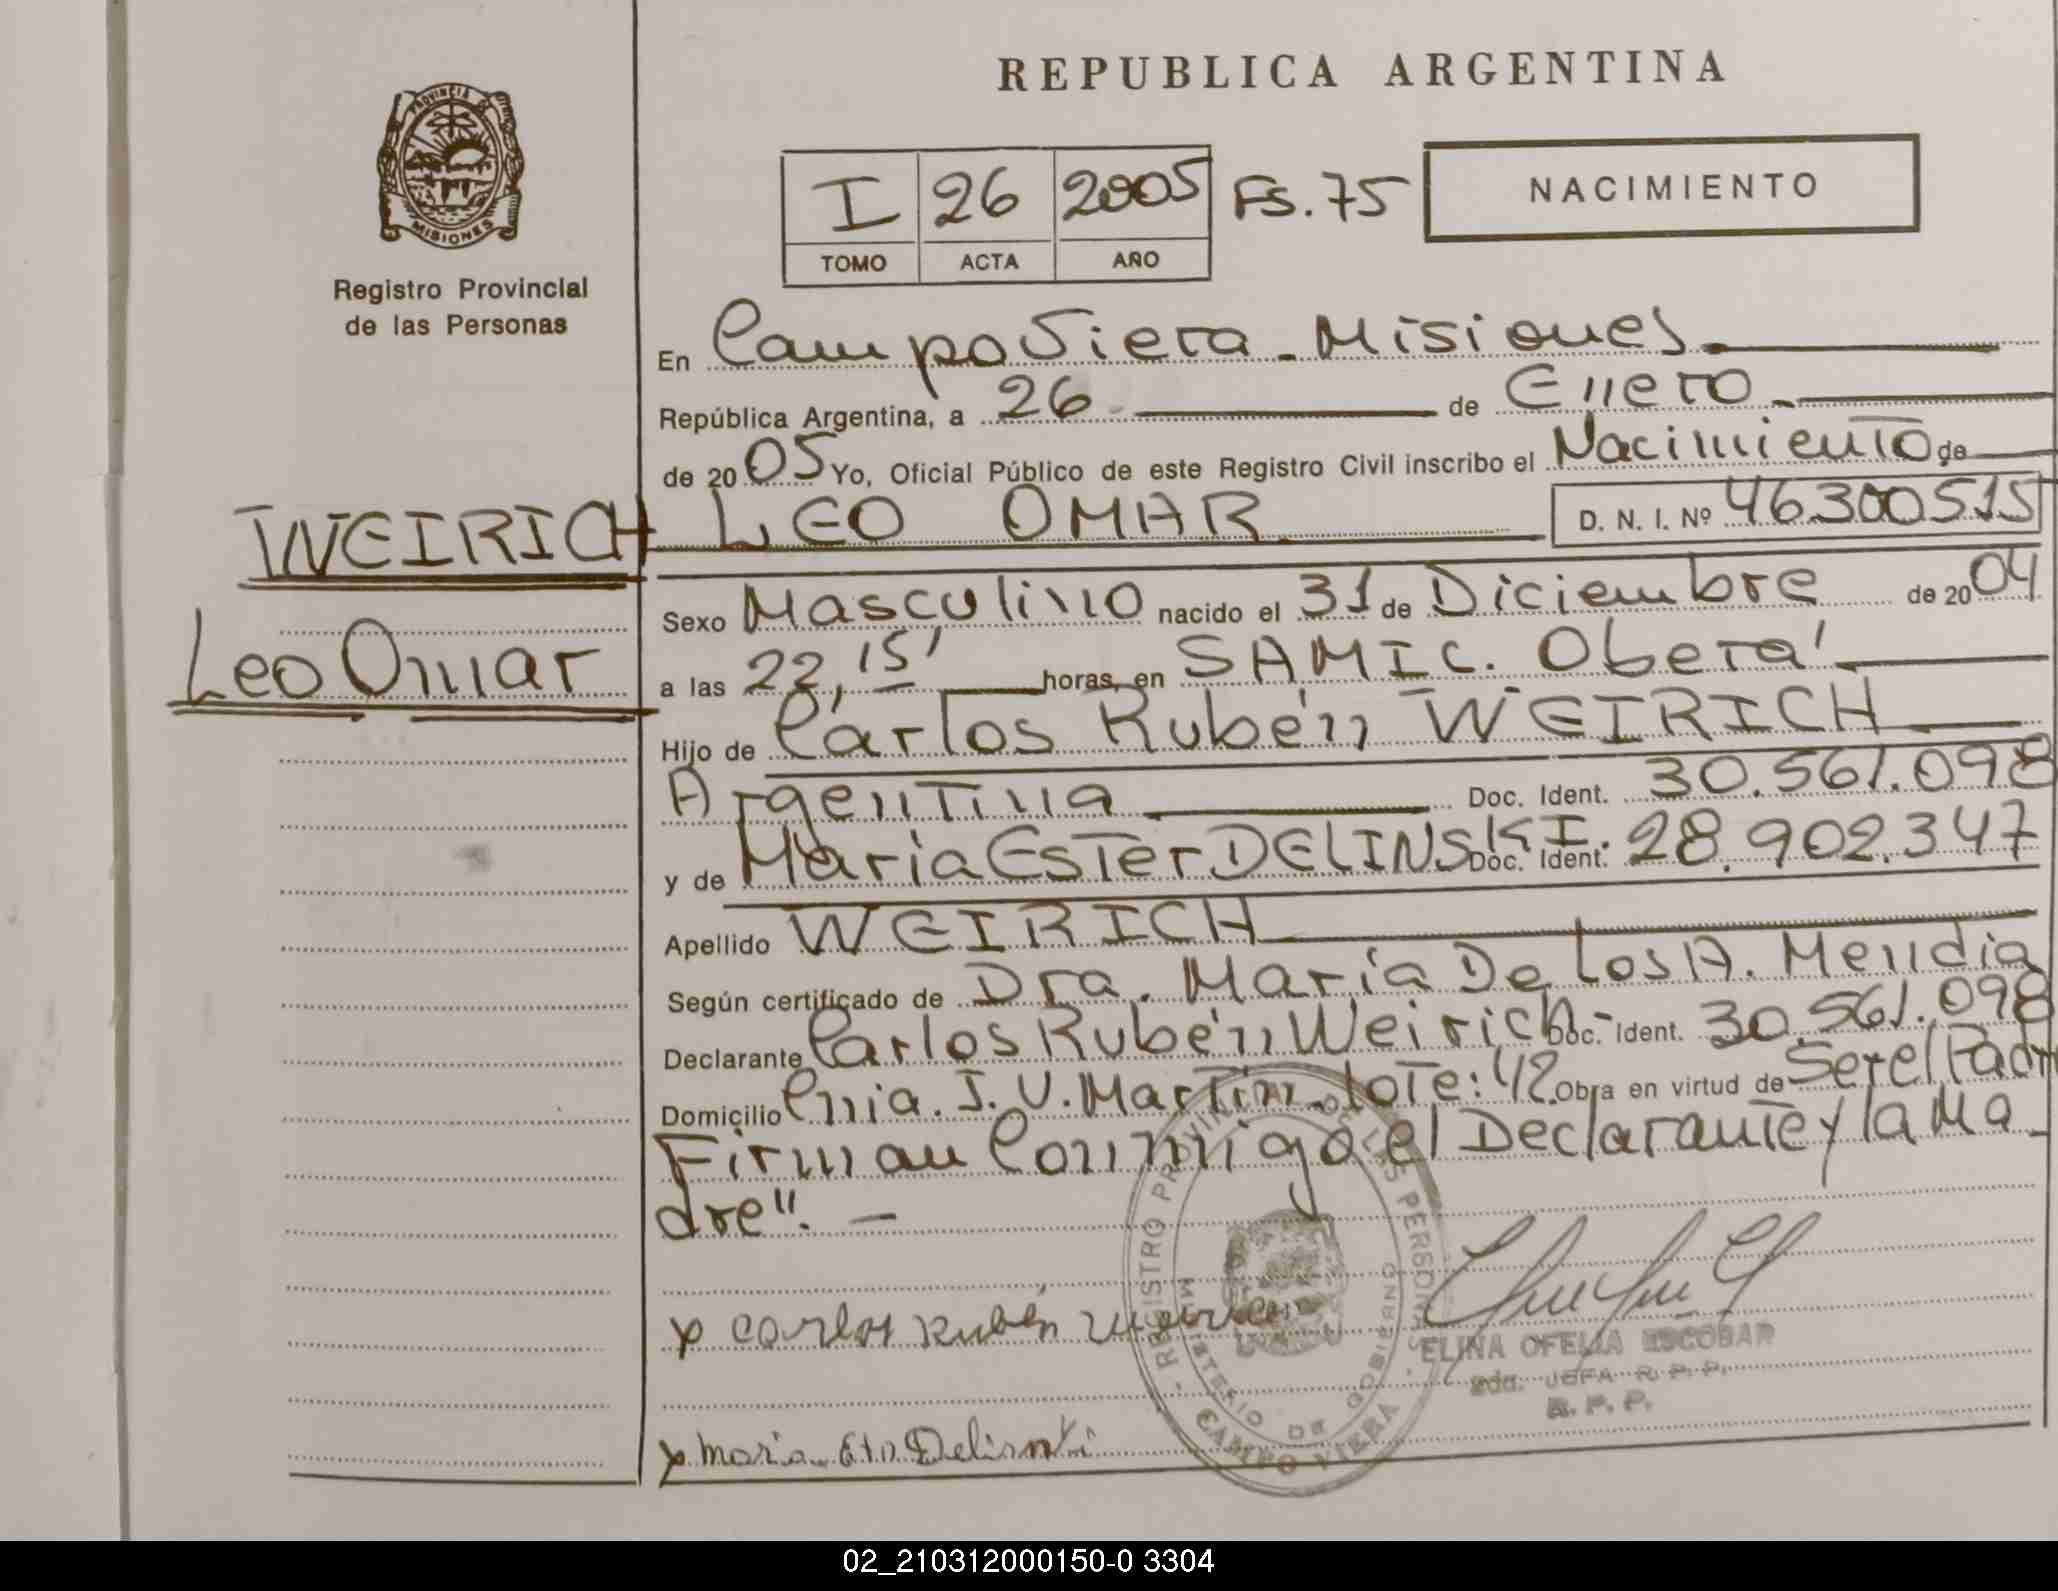 REPUBLICA ARGENTINA
PROVINCIA DE
MISIONES
Registro Provincial
de las Personas
I 26 2005 FS. 75
TOMO ACTA AÑO
NACIMIENTO
En Campo Viera - Misiones.
República Argentina, a 26 de Enero
de 2005 Yo, Oficial Público de este Registro Civil inscribo el Nacimiento de
WEIRICH LEO OMAR D. N. I. Nº 46300515
Leo Omar
Sexo Masculino nacido el 31 de Diciembre de 2004
a las 22,15' horas, en SAMIC. Oberá
Hijo de Carlos Rubén WEIRICH
Argentina Doc. Ident. 30.561.098
y de María Ester DELINSKI. Doc. Ident. 28.902.347
Apellido WEIRICH
Según certificado de Dra. María De Los A. Mendia
Declarante Carlos Rubén Weirich.- Doc. Ident. 30.561.098
Domicilio Cnia. J. V. Martin. lote: 42. Obra en virtud de Ser el Padr
Firman Conmigo el Declarante y la Ma
dre". -
x Carlos Rubén Weirich
x Maria Delinski
REGISTRO PROVINCIAL DE LAS PERSONAS
MINISTERIO DE GOBIERNO
CAMPO VIERA
ELINA OFELIA ESCOBAR
2da. JEFA R. P. P.
R. P. P.
02_210312000150-0 3304